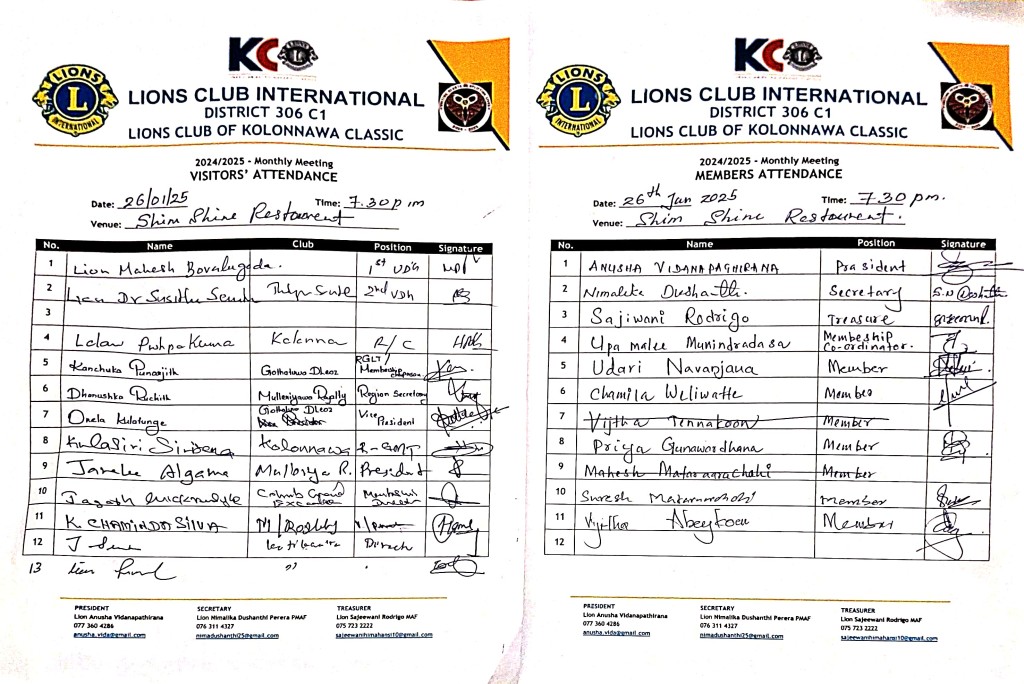 KC
LIONS
L
INTERNATIONAL
LIONS CLUB INTERNATIONAL
DISTRICT 306 C1
LIONS CLUB OF KOLONNAWA CLASSIC
2024/2025 - Monthly Meeting
VISITORS' ATTENDANCE
Date: 26/01/25 Time: 7.30 pm
Venue: Shim Shine Restaurent
No. Name Club Position Signature
1 Lion Mahesh Bovalugoda. 1st VDG
2 Lion Dr 2nd VDG
3
4 Lalaw Pushpa Kuma Kolonna R/C
5 Kanchuka Punarjith Gothatuwa DLeoz RGLT Membership
6 Dhanushka Ruchith Mulleriyawa Royally Region Secretary
7 Onela Kulatunge Gothatuwa DLeoz Vice President
8 Kulasiri Kolonnawa
9 Janaka Algama R. President
10 Jagath Colomb Grand
11 K. CHAMINDA SILVA
12
13
PRESIDENT
Lion Anusha Vidanapathirana
077 360 4286
anusha.vida@gmail.com
SECRETARY
Lion Nimalika Dushanthi Perera PMAF
076 311 4327
nimadushanthi25@gmail.com
TREASURER
Lion Sajeewani Rodrigo MAF
075 723 2222
sajeewanihimahansi10@gmail.com
KC
LIONS
L
INTERNATIONAL
LIONS CLUB INTERNATIONAL
DISTRICT 306 C1
LIONS CLUB OF KOLONNAWA CLASSIC
2024/2025 - Monthly Meeting
MEMBERS ATTENDANCE
Date: 26th Jan 2025 Time: 7.30 pm.
Venue: Shim Shine Restaurent.
No. Name Position Signature
1 ANUSHA VIDANAPAGHIRANA Prasident
2 Nimalika Dushanthi. Secretary
3 Sajiwani Rodrigo Treasure
4 Upa malee Munindradasa Membeship Co-ordinator.
5 Udari Navanjana Member
6 Chamila Weliwatte Member
7 Vijitha Tennakoon Member
8 Priya Gunawardhana Member
9 Mahesh Mataraarachchi Member
10 Suresh Member
11 Vijitha Abeykoon Member
12
PRESIDENT
Lion Anusha Vidanapathirana
077 360 4286
anusha.vida@gmail.com
SECRETARY
Lion Nimalika Dushanthi Perera PMAF
076 311 4327
nimadushanthi25@gmail.com
TREASURER
Lion Sajeewani Rodrigo MAF
075 723 2222
sajeewanihimahansi10@gmail.com